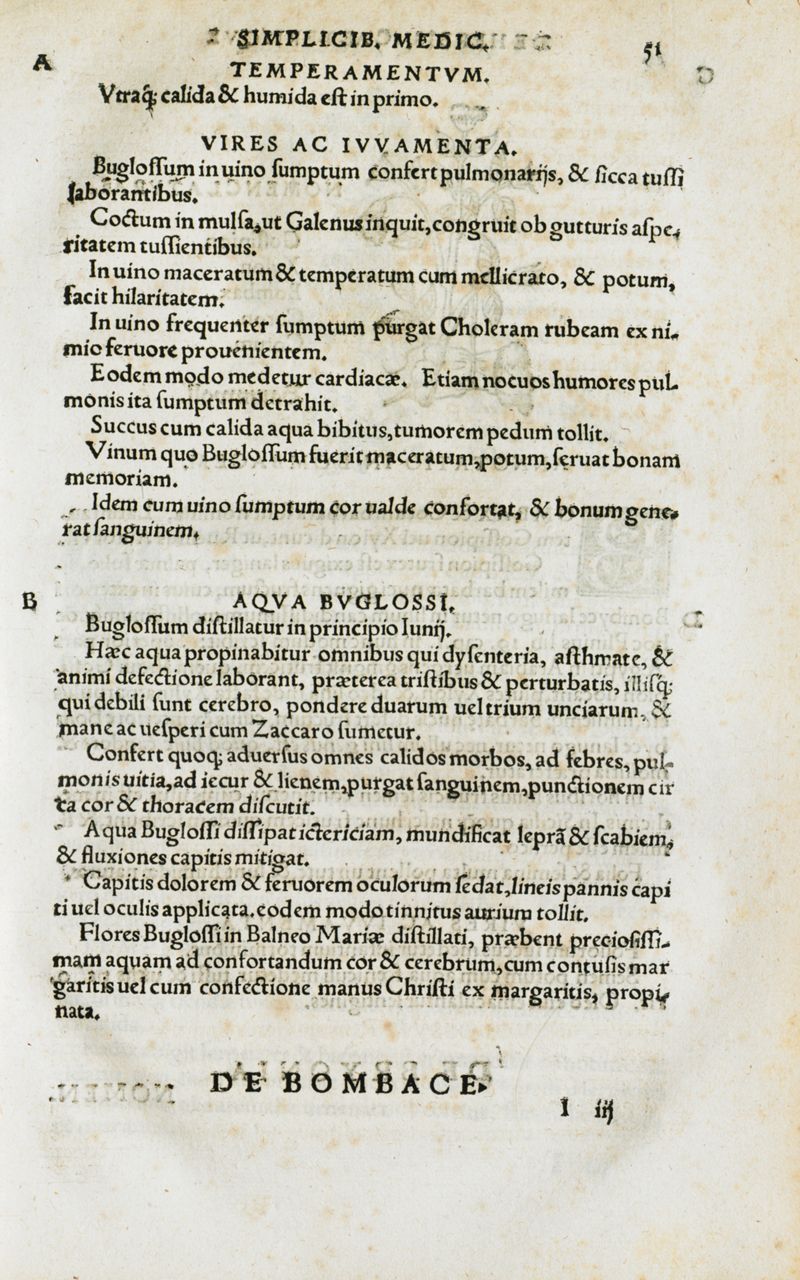 SIMPLICIB. MEDIC. 51
A
TEMPERAMENTVM.
Vtraq; calida & humida eſt in primo.
VIRES AC IVVAMENTA.
Bugloſſum in uino ſumptum confert pulmonarijs, & ſicca tuſſi
laborantibus.
Coctum in mulſa, ut Galenus inquit, congruit ob gutturis aſpe-
ritatem tuſſientibus.
In uino maceratum & temperatum cum mellicrato, & potum,
facit hilaritatem.
In uino frequenter ſumptum purgat Choleram rubeam ex ni-
mio feruore prouenientem.
Eodem modo medetur cardiacæ. Etiam nocuos humores pul-
monis ita ſumptum detrahit.
Succus cum calida aqua bibitus, tumorem pedum tollit.
Vinum quo Bugloſſum fuerit maceratum, potum, ſeruat bonam
memoriam.
Idem cum uino ſumptum cor ualde confortat, & bonum gene-
rat ſanguinem.
B
AQVA BVGLOSSI.
Bugloſſum diſtillatur in principio Iunij.
Hæc aqua propinabitur omnibus qui dyſenteria, aſthmate, &
animi defectione laborant, præterea triſtibus & perturbatis, illiſq;
qui debili ſunt cerebro, pondere duarum uel trium unciarum, &
mane ac ueſperi cum Zaccaro ſumetur.
Confert quoq; aduerſus omnes calidos morbos, ad febres, pul-
monis uitia, ad iecur & lienem, purgat ſanguinem, punctionem cir
ca cor & thoracem diſcutit.
Aqua Bugloſſi diſſipat ictericiam, mundificat leprã & ſcabiem,
& fluxiones capitis mitigat.
Capitis dolorem & feruorem oculorum ſedat, lineis pannis capi
ti uel oculis applicata. eodem modo tinnitus aurium tollit.
Flores Bugloſſi in Balneo Mariæ diſtillati, præbent precioſiſſi-
mam aquam ad confortandum cor & cerebrum, cum contuſis mar
garitis uel cum confectione manus Chriſti ex margaritis, propi-
nata.
DE BOMBACE.
I iij